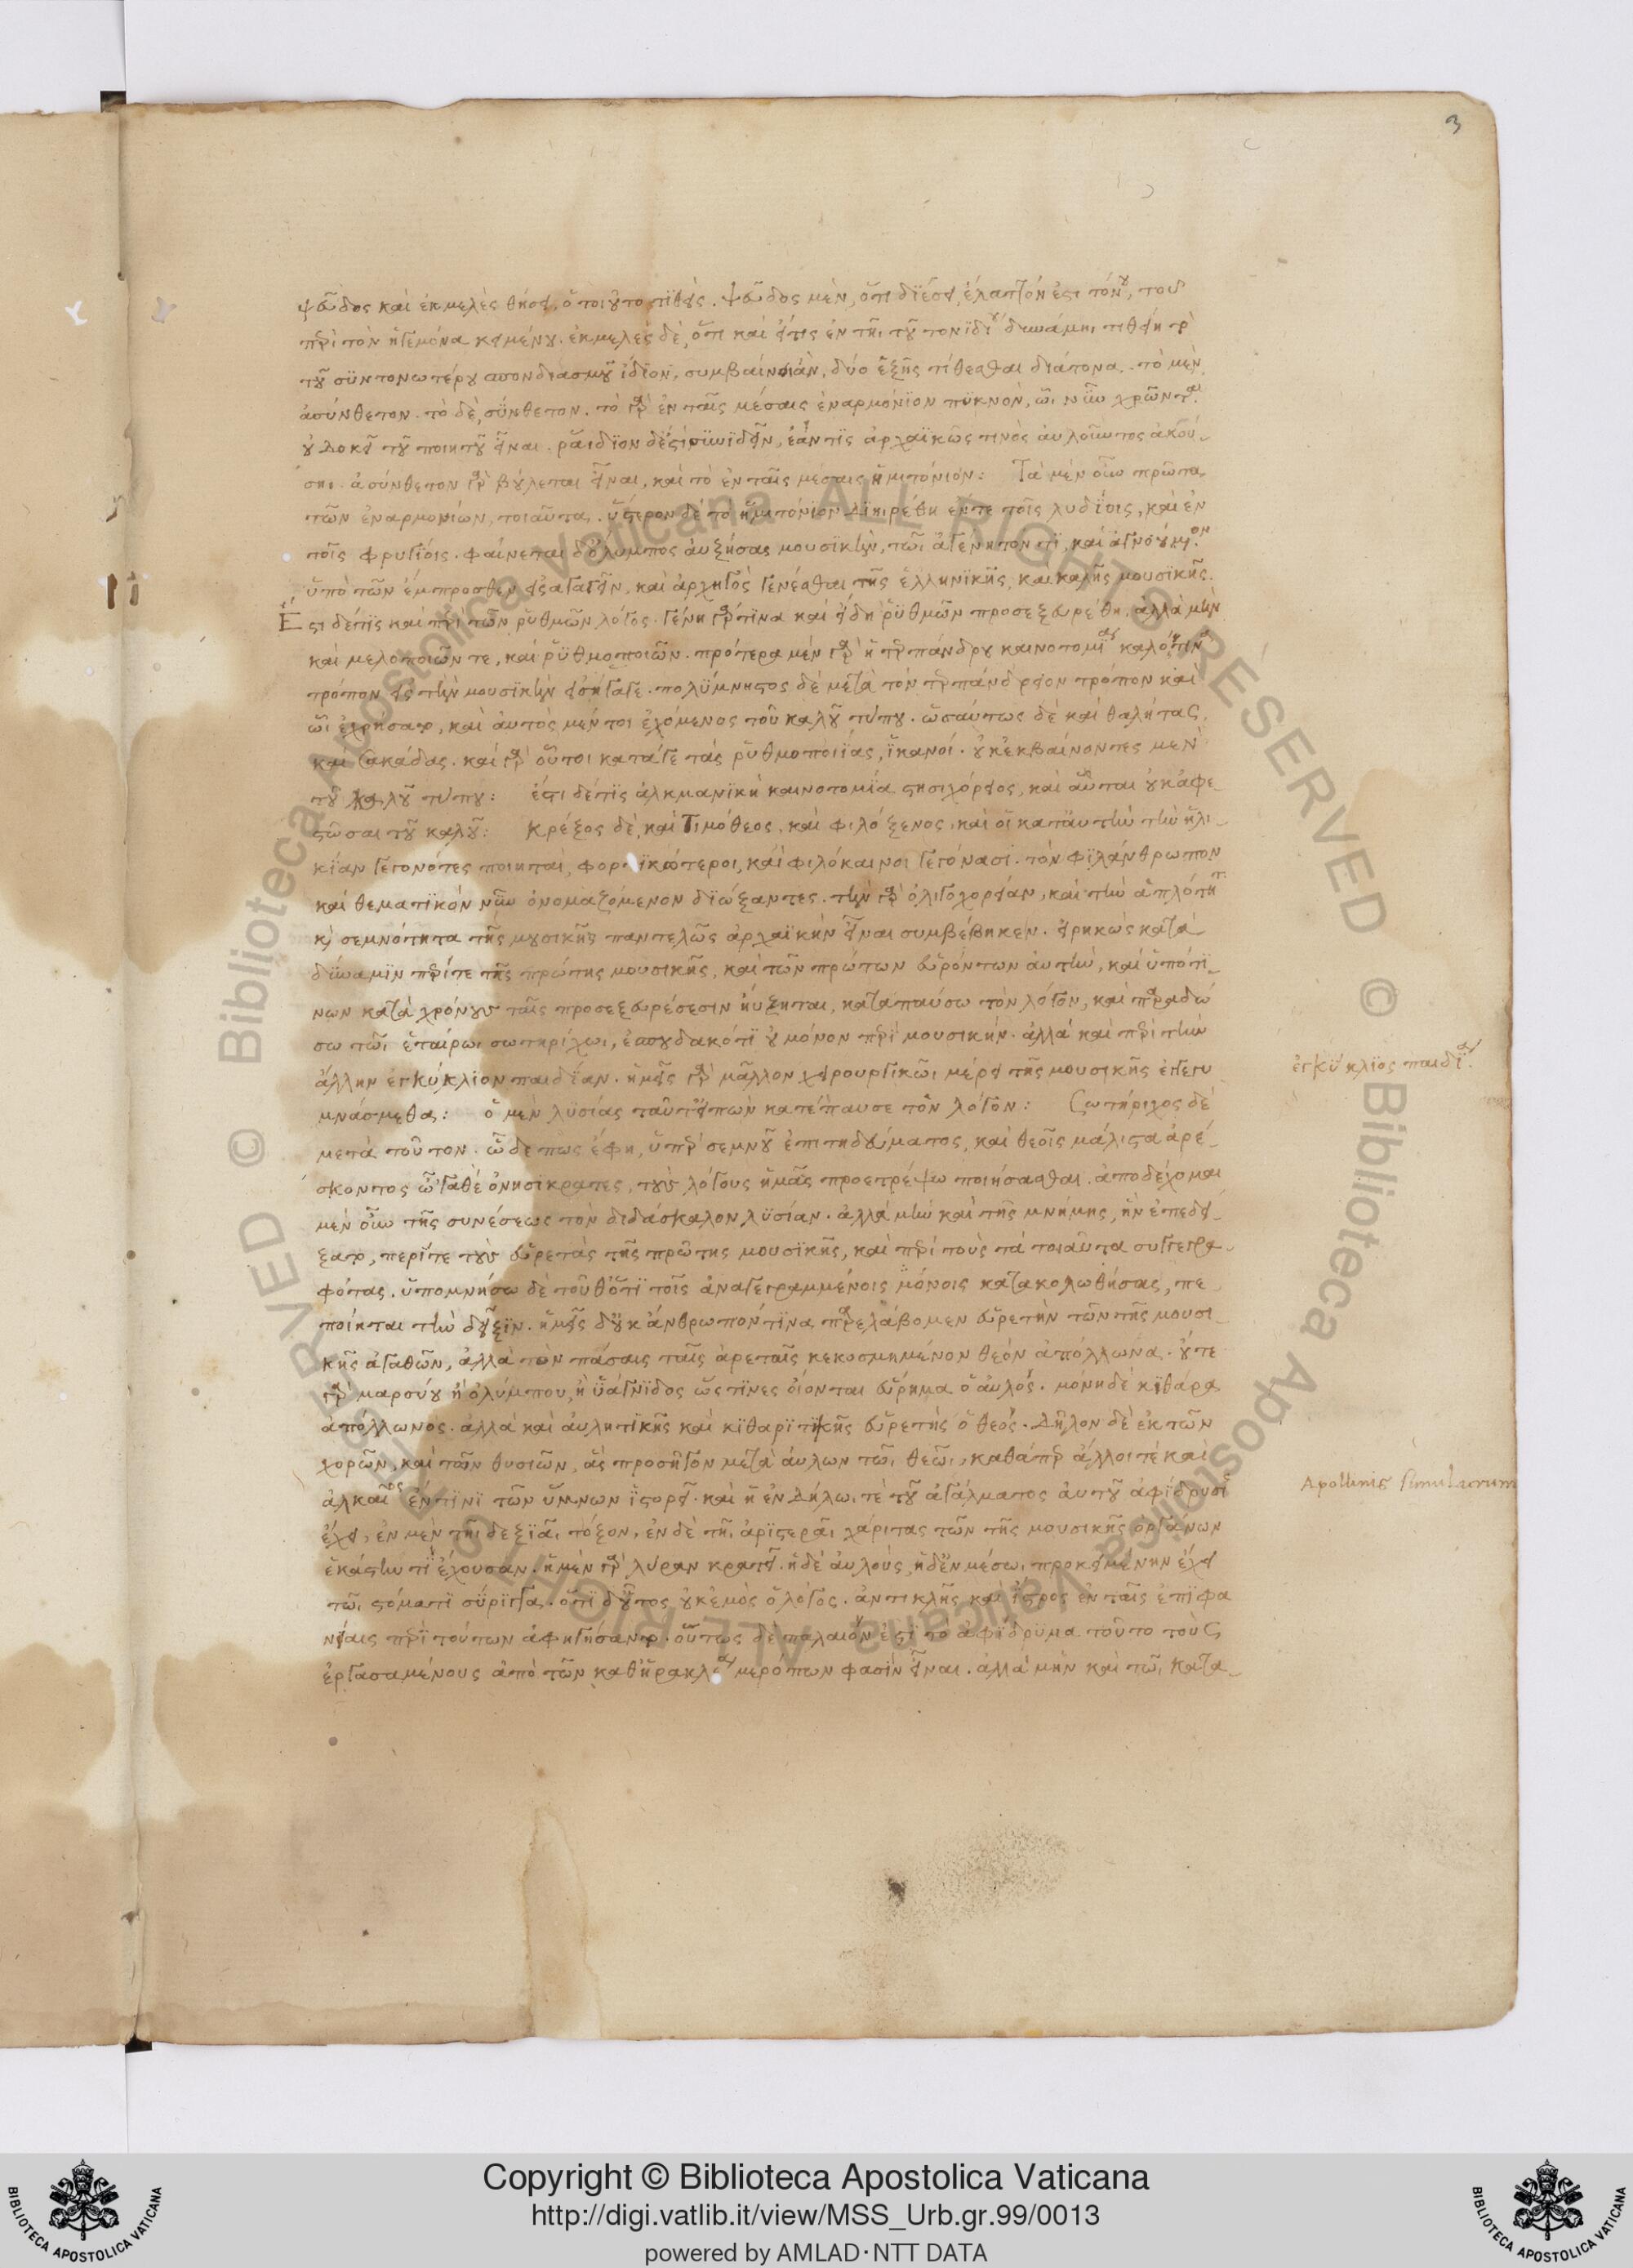 3
ψεῦδος καὶ ἐκμελὲς θήσει ὁ τοιοῦτο τιθείς. ψεῦδος μὲν, ὅτι διέσει ἔλαττόν ἐστι τόνου, τοῦ
περὶ τὸν ἡγεμόνα κειμένου. ἐκμελὲς δὲ, ὅτι καὶ εἴ τις ἐν τῆι τοῦ τονιαίου δυνάμει τιθείη τὸ
τοῦ συντονωτέρου σπονδιασμοῦ ἴδιον, συμβαίνοι ἂν, δύο ἑξῆς τίθεσθαι διάτονα. τὸ μὲν
ἀσύνθετον. τὸ δὲ, σύνθετον. τὸ γὰρ ἐν ταῖς μέσαις ἐναρμόνιον πυκνὸν, ὧι νῦν χρῶνται
οὐ δοκεῖ τοῦ ποιητοῦ εἶναι. ῥάιδιον δ' ἐστὶ συνιδεῖν, ἐάν τις ἀρχαϊκῶς τινὸς αὐλοῦντος ἀκού-
σηι. ἀσύνθετον γὰρ βούλεται εἶναι, καὶ τὸ ἐν ταῖς μέσαις ἡμιτόνιον: Τὰ μὲν οὖν πρῶτα
τῶν ἐναρμονίων, τοιαῦτα. ὕστερον δὲ τὸ ἡμιτόνιον διηιρέθη ἔν τε τοῖς λυδίοις, καὶ ἐν
τοῖς φρυγίοις. φαίνεται δ' ὄλυμπος αὐξήσας μουσικὴν, τῶι ἀγένητόν τι, καὶ ἀγνοούμενον
ὑπὸ τῶν ἔμπροσθεν εἰσαγαγεῖν, καὶ ἀρχηγὸς γενέσθαι τῆς ἑλληνικῆς, καὶ καλῆς μουσικῆς.
Ἔστι δέ τις καὶ περὶ τῶν ῥυθμῶν λόγος. γένη γάρ τινα καὶ εἴδη ῥυθμῶν προσεξευρέθη, ἀλλὰ μὴν
καὶ μελοποιῶν τε, καὶ ῥυθμοποιῶν. προτέρα μὲν γὰρ ἡ τερπάνδρου καινοτομία καλόν τινα
τρόπον εἰς τὴν μουσικὴν εἰσήγαγε. πολύμνηστος δὲ μετὰ τὸν τερπάνδρειον τρόπον καὶ
ὧι ἐχρήσατο, καὶ αὐτὸς μέντοι ἐχόμενος τοῦ καλοῦ τύπου. ὡσαύτως δὲ καὶ θαλήτας,
καὶ Σακάδας. καὶ γὰρ οὗτοι κατά γε τὰς ῥυθμοποιίας, ἱκανοί. οὐκ ἐκβαίνοντες μὲν
τοῦ καλοῦ τύπου: ἔστι δέ τις ἀλκμανικὴ καινοτομία στησιχόρειος, καὶ αὗται οὐκ ἀφε-
στῶσαι τοῦ καλοῦ: Κρέξος δὲ, καὶ Τιμόθεος, καὶ φιλόξενος, καὶ οἱ κατ' αὐτὴν τὴν ἡλι-
κίαν γεγονότες ποιηταὶ, φορτικώτεροι, καὶ φιλόκαινοι γεγόνασι. τὸν φιλάνθρωπον
καὶ θεματικὸν νῦν ὀνομαζόμενον διώξαντες. τὴν γὰρ ὀλιγοχορδίαν, καὶ τὴν ἁπλότητα
κ) σεμνότητα τῆς μουσικῆς παντελῶς ἀρχαϊκὴν εἶναι συμβέβηκεν. εἰρηκὼς κατὰ
δύναμιν περί τε τῆς πρώτης μουσικῆς, καὶ τῶν πρώτων εὑρόντων αὐτὴν, καὶ ὑπό τί-
νων κατὰ χρόνους ταῖς προσεξευρέσεσιν ηὔξηται, καταπαύσω τὸν λόγον, καὶ παραδώ
σω τῶι ἑταίρωι σωτηρίχωι, ἐσπουδακότι οὐ μόνον περὶ μουσικήν. ἀλλὰ καὶ περὶ τὴν
ἄλλην ἐγκύκλιον παιδίαν. ἡμεῖς γὰρ μᾶλλον χειρουργικῶι μέρει τῆς μουσικῆς ἐγγεγυ
μνάσμεθα: ὁ μὲν λυσίας ταῦτ' εἰπὼν κατέπαυσε τὸν λόγον: Σωτήριχος δὲ
μετὰ τοῦτον. ὧδέ πως ἔφη, ὑπὲρ σεμνοῦ ἐπιτηδεύματος, καὶ θεοῖς μάλιστα ἀρέ-
σκοντος ὦ 'γαθὲ ὀνησίκρατες, τοὺς λόγους ἡμᾶς προετρέψω ποιήσασθαι. ἀποδέχομαι
μὲν οὖν τῆς συνέσεως τὸν διδάσκαλον λυσίαν. ἀλλὰ μὴν καὶ τῆς μνήμης, ἣν ἐπεδεί-
ξατο, περί τε τοὺς εὑρετὰς τῆς πρώτης μουσικῆς, καὶ περὶ τοὺς τὰ τοιαῦτα συγγεγρα-
φότας. ὑπομνήσω δὲ τοῦθ' ὅτι τοῖς ἀναγεγραμμένοις μόνοις κατακολουθήσας, πε
ποίηται τὴν δεῖξιν. ἡμεῖς δ' οὐκ ἄνθρωπόν τινα παρελάβομεν εὑρετὴν τῶν τῆς μουσι-
κῆς ἀγαθῶν, ἀλλὰ τὸν πάσαις ταῖς ἀρεταῖς κεκοσμημένον θεὸν ἀπόλλωνα. οὔτε
γὰρ μαρσύου ἢ ὀλύμπου, ἢ ὑάγνιδος ὥς τινες οἴονται εὕρημα ὁ αὐλός. μόνη δὲ κιθάρα
ἀπόλλωνος. ἀλλὰ καὶ αὐλητικῆς καὶ κιθαριτικῆς εὑρετὴς ὁ θεός. Δῆλον δὲ ἐκ τῶν
χορῶν, καὶ τῶν θυσιῶν, ἃς προσῆγον μετὰ αὐλῶν τῶι θεῶι, καθάπερ ἄλλοι τὲ καὶ
ἀλκαῖος ἔν τινι τῶν ὕμνων ἱστορεῖ. καὶ ἡ ἐν Δήλωι τὲ τοῦ ἀγάλματος αὐτοῦ ἀφίδρυσις
ἔχει, ἐν μὲν τῆι δεξιᾶι τόξον, ἐν δὲ τῆι ἀριστερᾶι χάριτας τῶν τῆς μουσικῆς ὀργάνων
ἑκάστην τι ἔχουσαν. ἡ μὲν γὰρ λύραν κρατεῖ. ἡ δὲ αὐλοὺς, ἡ δ' ἐν μέσωι προκειμένην ἔχει
τῶι στόματι σύριγγα. ὅτι δ' οὗτος οὐκ ἐμὸς ὁ λόγος. ἀντικλῆς καὶ ἴστρος ἐν ταῖς ἐπιφα
νείαις περὶ τούτων ἀφηγήσαντο. οὕτως δὲ παλαιόν ἐστι τὸ ἀφίδρυμα τοῦτο τοὺς
ἐργασαμένους ἀπὸ τῶν καθ' ἡρακλέα μερόπων φασὶν εἶναι. ἀλλὰ μὴν καὶ τῶι κατα-
ἐγκύκλιος παιδία
Apollinis simulacrum
Copyright © Biblioteca Apostolica Vaticana
http://digi.vatlib.it/view/MSS_Urb.gr.99/0013
powered by AMLAD·NTT DATA
BIBLIOTECA APOSTOLICA VATICANA
BIBLIOTECA APOSTOLICA VATICANA